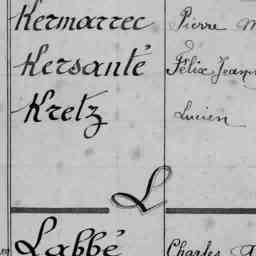 Kermarrec Pierre M
Kersanté Félix Jean
Kretz Lucien
L
Labbé Charles A